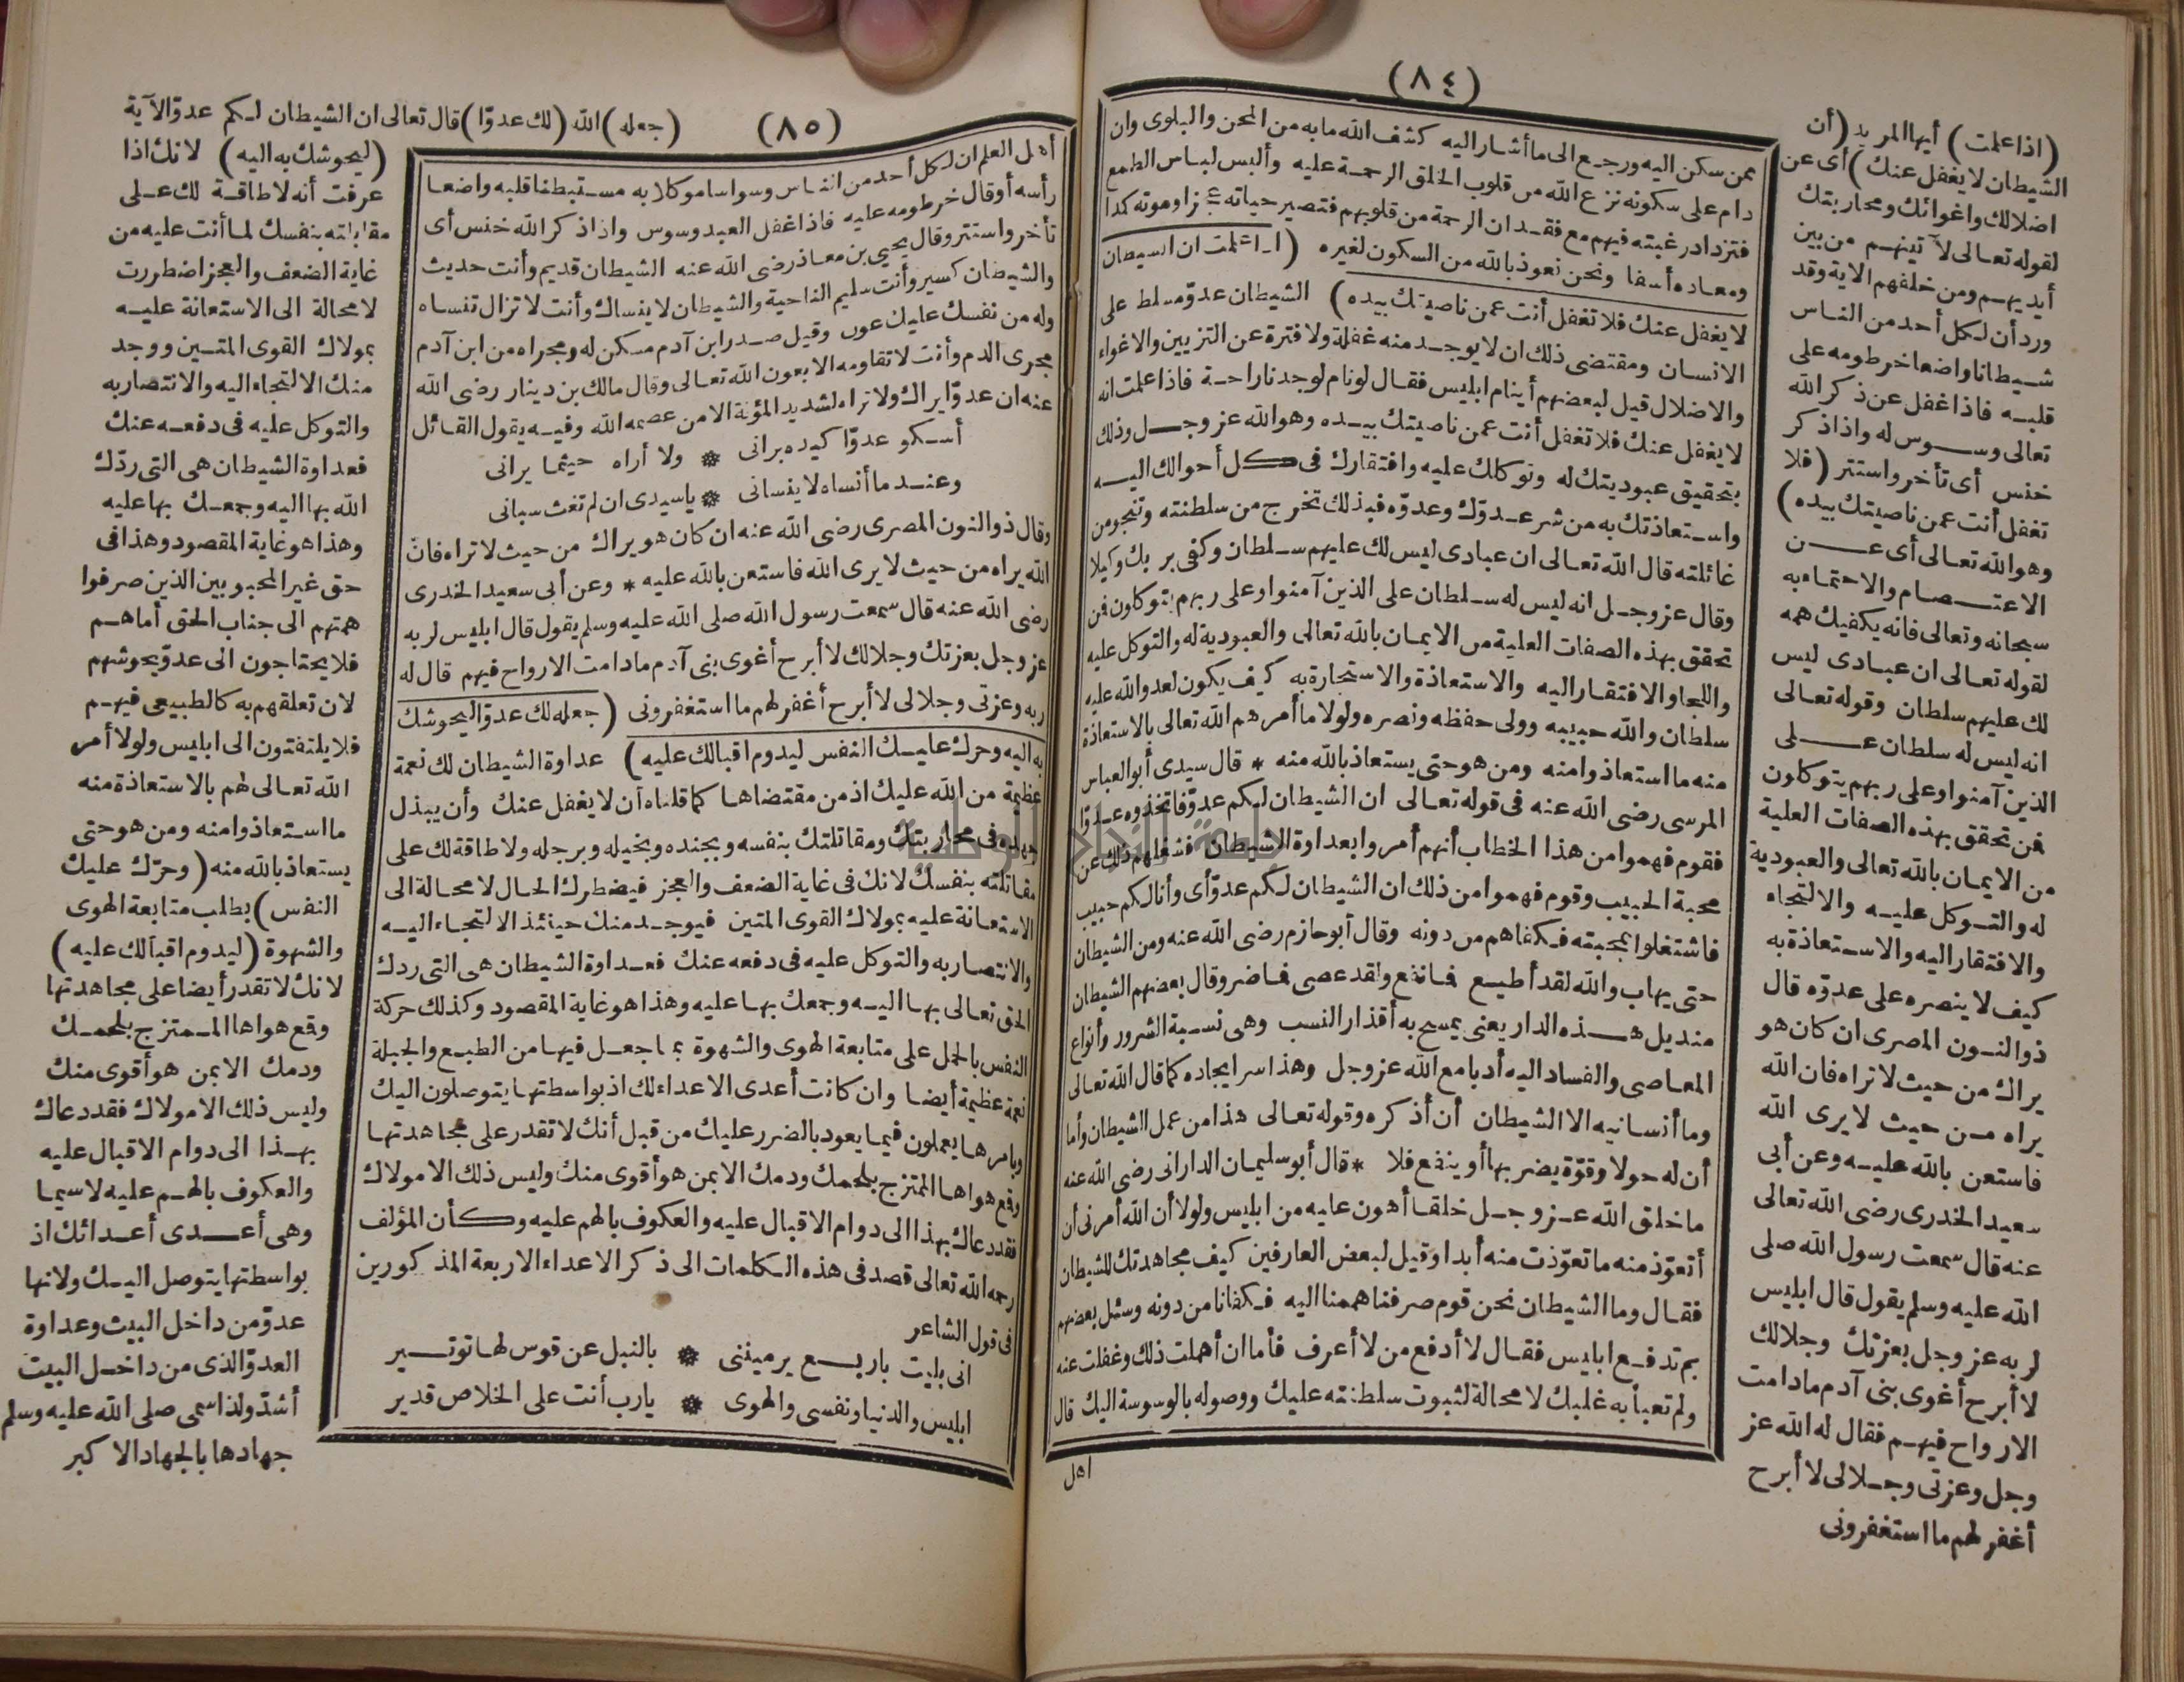 (٨٤)
ممن سكن اليه ورجع الى ما أشار اليه كشف الله ما به من المحن والبلوى وان
دام على سكونه نزع الله من قلوب الخلق الرحمة عليه وألبس لباس الطمع
فتزداد رغبته فيهم مع فقدان الرحمة من قلوبهم فتصير حياته عجزا وموته كمدا
ومعاده أسفا ونحن نعوذ بالله من السكون لغيره (اذا علمت ان الشيطان
لا يغفل عنك فلا تغفل أنت عمن ناصيتك بيده) الشيطان عدوّ مسلط على
الانسان ومقتضى ذلك ان لا يوجد منه غفلة ولا فترة عن التزيين والاغواء
والاضلال قيل لبعضهم أينام ابليس فقال لو نام لوجدنا راحة فاذا علمت انه
لا يغفل عنك فلا تغفل أنت عمن ناصيتك بيده وهو الله عز وجل وذلك
بتحقيق عبوديتك له وتوكلك عليه وافتقارك فى كل أحوالك اليه
واستعاذتك به من شر عدوّك وعدوّه فبذلك تخرج من سلطنته وتنجو من
غائلته قال الله تعالى ان عبادى ليس لك عليهم سلطان وكفى بربك وكيلا
وقال عز وجل انه ليس له سلطان على الذين آمنوا وعلى ربهم يتوكلون فمن
تحقق بهذه الصفات العلية من الايمان بالله تعالى والعبودية له والتوكل عليه
واللجاو الافتقار اليه والاستعاذة والاستجارة به كيف يكون لعدو الله عليه
سلطان والله حبيبه وولى حفظه ونصره ولولا ما أمرهم الله تعالى بالاستعاذة
منه ما استعاذوا منه ومن هو حتى يستعاذ بالله منه * قال سيدى أبو العباس
المرسى رضى الله عنه فى قوله تعالى ان الشيطان لكم عدوّ فاتخذوه عدوّا
فقوم فهموا من هذا الخطاب أنهم أمروا بعداوة الشيطان فشغلهم ذلك عن
محبة الحبيب وقوم فهموا من ذلك ان الشيطان لكم عدوّ أى وأنا لكم حبيب
فاشتغلوا بمحبته فكفاهم من دونه وقال أبو حازم رضى الله عنه ومن الشيطان
حتى يهاب والله لقد أطيع فما نفع ولقد عصى فما ضر وقال بعضهم الشيطان
منديل هذه الدار يعنى يمسح به أقذار النسب وهى نسبة الشرور وأنواع
المعاصى والفساد اليه أدبا مع الله عز وجل وهذا سر ايجاده كما قال الله تعالى
وما أنسانيه الا الشيطان أن أذكره وقوله تعالى هذا من عمل الشيطان وأما
أن له حولا وقوّة يضر بها أو ينفع فلا * قال أبو سليمان الدارانى رضى الله عنه
ما خلق الله عز وجل خلقا أهون عليه من ابليس ولولا أن الله أمرنى أن
أتعوّذ منه ما تعوّذت منه أبدا وقيل لبعض العارفين كيف مجاهدتك للشيطان
فقال وما الشيطان نحن قوم صرفنا هممنا اليه فكفانا من دونه وسئل بعضهم
بم تدفع ابليس فقال لا أدفع من لا أعرف فأما ان أهملت ذلك وغفلت عنه
ولم تعبأ به غلبك لا محالة لثبوت سلطنته عليك ووصوله بالوسوسة اليك قال
اهل
(اذا علمت) أيها المريد (أن
الشيطان لا يغفل عنك) أى عن
اضلالك واغوائك ومحاربتك
لقوله تعالى لآتينهم من بين
أيديهم ومن خلفهم الاية وقد
ورد أن لكل أحد من الناس
شيطانا واضعا خرطومه على
قلبه فاذا غفل عن ذكر الله
تعالى وسوس له واذا ذكر
خنس أى تأخر واستتر (فلا
تغفل أنت عمن ناصيتك بيده)
وهو الله تعالى أى عن
الاعتصام والاحتماء به
سبحانه وتعالى فانه يكفيك همه
لقوله تعالى ان عبادى ليس
لك عليهم سلطان وقوله تعالى
انه ليس له سلطان على
الذين آمنوا وعلى ربهم يتوكلون
فمن تحقق بهذه الصفات العلية
من الايمان بالله تعالى والعبودية
له والتوكل عليه والالتجاه
والافتقار اليه والاستعاذة به
كيف لا ينصره على عدوّه قال
ذو النون المصرى ان كان هو
يراك من حيث لا تراه فان الله
يراه من حيث لا يرى الله
فاستعن بالله عليه وعن أبى
سعيد الخدرى رضى الله تعالى
عنه قال سمعت رسول الله صلى
الله عليه وسلم يقول قال ابليس
لربه عز وجل بعزتك وجلالك
لا أبرح أغوى بنى آدم ما دامت
الارواح فيهم فقال له الله عز
وجل وعزتى وجلالى لا أبرح
أغفر لهم ما استغفرونى
(٨٥)
أهل العلم ان لكل أحد من الناس وسواسا موكلا به مستبطنا قلبه واضعا
رأسه أو قال خرطومه عليه فاذا غفل العبد وسوس واذا ذكر الله خنس أى
تأخر واستتر وقال يحيى بن معاذ رضى الله عنه الشيطان قديم وأنت حديث
والشيطان كسير وأنت سليم الناحية والشيطان لا ينساك وأنت لا تزال تنساه
وله من نفسك عليك عون وقيل صدر ابن آدم مسكن له ومجراه من ابن آدم
مجرى الدم وأنت لا تقاومه الا بعون الله تعالى وقال مالك بن دينار رضى الله
عنه ان عدوّا يراك ولا تراه لشديد المؤنة الا من عصمه الله وفيه يقول القائل
أشكو عدوّا كيده برانى * ولا أراه حيثما يرانى
وعندما أنساه لا ينسانى * يا سيدى ان لم تغث سبانى
وقال ذو النون المصرى رضى الله عنه ان كان هو يراك من حيث لا تراه فان
الله يراه من حيث لا يرى الله فاستعن بالله عليه * وعن أبى سعيد الخدرى
رضى الله عنه قال سمعت رسول الله صلى الله عليه وسلم يقول قال ابليس لربه
عز وجل بعزتك وجلالك لا أبرح أغوى بنى آدم ما دامت الارواح فيهم قال له
ربه وعزتى وجلالى لا أبرح أغفر لهم ما استغفرونى (جعله لك عدوّا ليحوشك
به اليه وحرك عليك النفس ليدوم اقبالك عليه) عداوة الشيطان لك نعمة
عظيمة من الله عليك اذ من مقتضاها كما قلناه أن لا يغفل عنك وأن يبذل
جهده فى محاربتك ومقاتلتك بنفسه وبجنده وبخيله وبرجله ولا طاقة لك على
مقاتلته بنفسك لانك فى غاية الضعف والعجز فيضطرك الحال لا محالة الى
الاستعانة عليه بمولاك القوى المتين فيوجد منك حينئذ الالتجاء اليه
والانتصار به والتوكل عليه فى دفعه عنك فعداوة الشيطان هى التى ردك
الحق تعالى بها اليه وجمعك بها عليه وهذا هو غاية المقصود وكذلك حركة
النفس بالحمل على متابعة الهوى والشهوة بما جعل فيها من الطبع والجبلة
نعمة عظيمة أيضا وان كانت أعدى الاعداء لك اذ بواسطتها يتوصلون اليك
وبامرها يعملون فيما يعود بالضرر عليك من قبل أنك لا تقدر على مجاهدتها
وقع هواها الممتزج بلحمك ودمك الا بمن هو أقوى منك وليس ذلك الا مولاك
فقد دعاك بهذا الى دوام الاقبال عليه والعكوف بالهم عليه وكأن المؤلف
رحمه الله تعالى قصد فى هذه الكلمات الى ذكر الاعداء الاربعة المذكورين
فى قول الشاعر
انى بليت باربع يرميننى * بالنبل عن قوس لها توتير
ابليس والدنيا ونفسى والهوى * يارب أنت على الخلاص قدير
(جعله) الله (لك عدوّا) قال تعالى ان الشيطان لكم عدوّ الآية
(ليحوشك به اليه) لانك اذا
عرفت أنه لا طاقة لك على
مقابلته بنفسك لما أنت عليه من
غاية الضعف والعجز اضطررت
لا محالة الى الاستعانة عليه
بمولاك القوى المتين ووجد
منك الالتجاء اليه والانتصار به
والتوكل عليه فى دفعه عنك
فعداوة الشيطان هى التى ردّك
الله بها اليه وجمعك بها عليه
وهذا هو غاية المقصود وهذا فى
حق غير المحبوبين الذين صرفوا
همتهم الى جناب الحق أما هم
فلا يحتاجون الى عدوّ يحوشهم
لان تعلقهم به كالطبيعى فيهم
فلا يلتفتون الى ابليس ولولا أمر
الله تعالى لهم بالاستعاذة منه
ما استعاذوا منه ومن هو حتى
يستعاذ بالله منه (وحرّك عليك
النفس) بطلب متابعة الهوى
والشهوة (ليدوم اقبالك عليه)
لانك لا تقدر أيضا على مجاهدتها
وقع هواها الممتزج بلحمك
ودمك الا بمن هو أقوى منك
وليس ذلك الا مولاك فقد دعاك
بهذا الى دوام الاقبال عليه
والعكوف بالهم عليه لا سيما
وهى أعدى أعدائك اذ
بواسطتها يتوصل اليك ولانها
عدوّ من داخل البيت وعداوة
العدوّ الذى من داخل البيت
أشدّ ولذا سمى صلى الله عليه وسلم
جهادها بالجهاد الاكبر